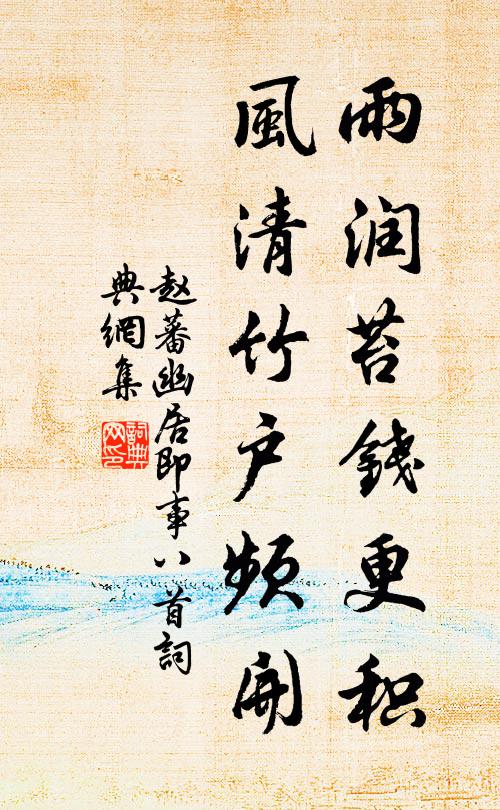 雨润苔錢更积
風清竹户頻開
赵蕃幽居即事八首詞
典網集
詞典
网印